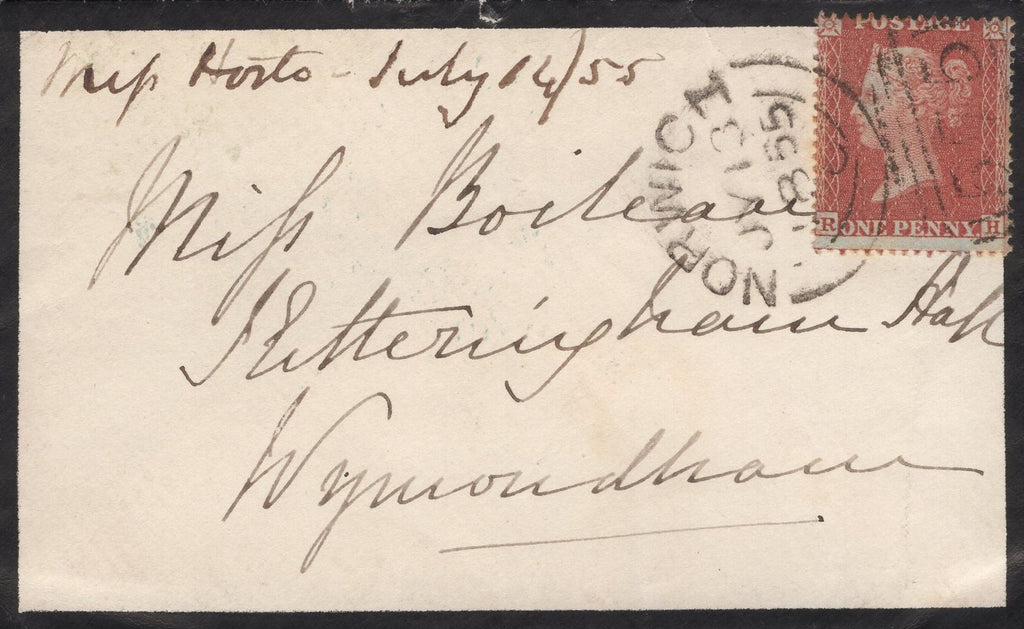 Miss Horts - July 14/55
POSTAGE
NORWICH
JY 13
1855
R ONE PENNY H
Miss Boileau
Ketteringham Hall
Wymondham